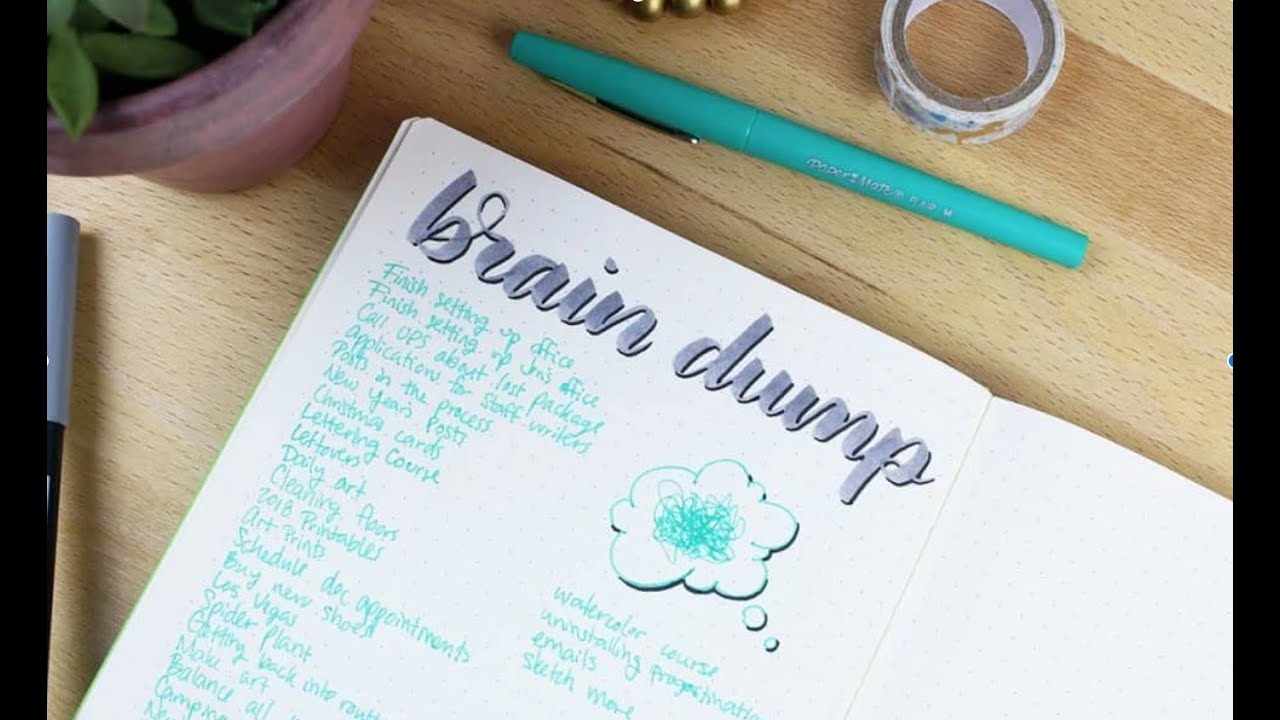 Paper Mate Flair M
brain dump
Finish setting up office
Finish setting up Jen's office
Call UPS about lost package
Applications for staff writers
Posts in the process
New Years Posts
Christmas cards
Lettering Course
Leftovers
Daily art
Cleaning floors
2018 Printables
Art Prints
Schedule doc appointments
Buy new shoes
Las Vegas
Spider Plant
Getting back into
Make art
Balance all
Camping
watercolor course
uninstalling
emails
sketch more